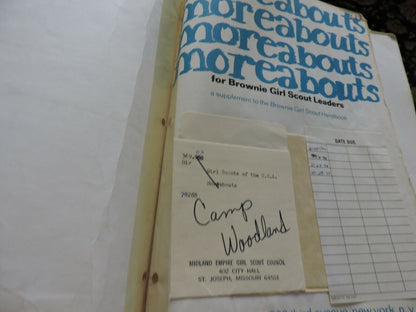 moreabouts
moreabouts
moreabouts
moreabouts
for Brownie Girl Scout Leaders
a supplement to the Brownie Girl Scout Handbook
DATE DUE
Girl Scouts of the U.S.A.
Moreabouts
Camp
Woodland
MIDLAND EMPIRE GIRL SCOUT COUNCIL
402 CITY HALL
ST. JOSEPH, MISSOURI 64501
third avenue, new york, n.y.